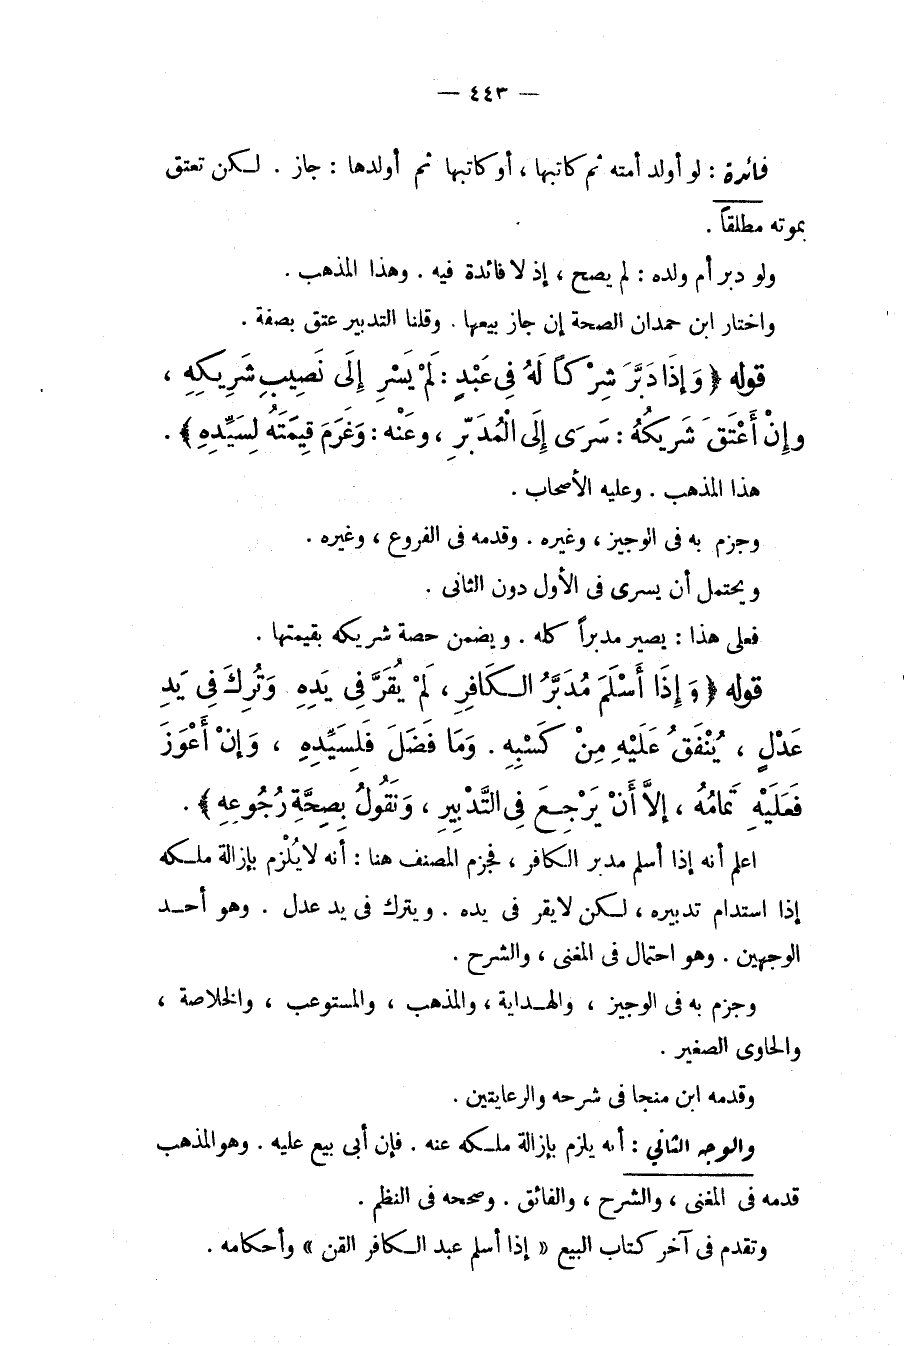 — ٤٤٣ —
فائدة : لو أولد أمته ثم كاتبها ، أو كاتبها ثم أولدها : جاز . لـكن تعتق
بموته مطلقاً .
ولو دبر أم ولده : لم يصح ، إذ لا فائدة فيه . وهذا المذهب .
واختار ابن حمدان الصحة إن جاز بيعها . وقلنا التدبير عتق بصفة .
قوله ﴿ وَإِذَا دَبَّرَ شِرْكاً لَهُ فِى عَبْدٍ : لَمْ يَسْرِ إِلَى نَصِيبِ شَرِيكِهِ ،
وإِنْ أَعْتَقَ شَرِيكُهُ : سَرَى إِلَى الْمُدَبَّرِ ، وعَنْه : وَغَرِمَ قِيمَتَهُ لِسَيِّدِهِ ﴾ .
هذا المذهب . وعليه الأصحاب .
وجزم به فى الوجيز ، وغيره . وقدمه فى الفروع ، وغيره .
ويحتمل أن يسرى فى الأول دون الثانى .
فعلى هذا : يصير مدبراً كله . ويضمن حصة شريكه بقيمتها .
قوله ﴿ وَإِذَا أَسْلَمَ مُدَبَّرُ الـكَافِرِ ، لَمْ يُقَرَّ فِى يَدِهِ وَتُرِكَ فِى يَدِ
عَدْلٍ ، يُنْفَقُ عَلَيْهِ مِنْ كَسْبِهِ . وَمَا فَضَلَ فَلِسَيِّدِهِ ، وَإِنْ أَعْوَزَ
فَعَلَيْهِ تَمَامُهُ ، إِلاَّ أَنْ يَرْجِـعَ فِى التَّدْبِيرِ ، وَنَقُولُ بِصِحَّةِ رُجُوعِهِ ﴾ .
اعلم أنه إذا أسلم مدبر الـكافر ، فجزم المصنف هنا : أنه لا يُلْزم بإزالة ملـكه
إذا استدام تدبيره ، لـكن لايقر فى يده . ويترك فى يد عدل . وهو أحـد
الوجهين . وهو احتمال فى المغنى ، والشرح .
وجزم به فى الوجيز ، والهـداية ، والمذهب ، والمستوعب ، والخلاصة ،
والحاوى الصغير .
وقدمه ابن منجا فى شرحه والرعايتين .
والوجه الثاني : أنه يلزم بإزالة ملـكه عنه . فإن أبى بيع عليه . وهو المذهب
قدمه فى المغنى ، والشرح ، والفائق . وصححه فى النظم .
وتقدم فى آخر كتاب البيع « إذا أسلم عبد الـكافر القن » وأحكامه .